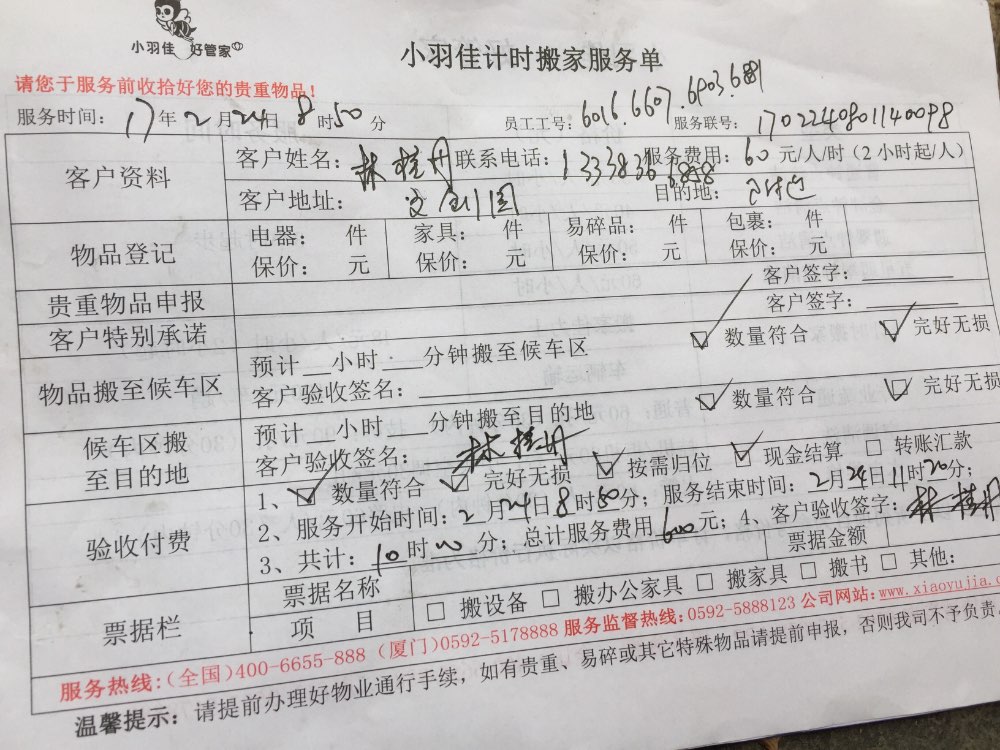 小羽佳 好管家
小羽佳计时搬家服务单
请您于服务前收拾好您的贵重物品！
服务时间：17年2月24日8时50分 员工工号：6016.6607.6903.6881 服务联号：1702240801140098
客户资料 客户姓名：林桂丹 联系电话：13338366858 服务费用：60元/人/时（2小时起/人）
客户地址：文创园 目的地：
物品登记 电器： 件 家具： 件 易碎品： 件 包裹： 件
保价： 元 保价： 元 保价： 元 保价： 元
贵重物品申报 客户签字：
客户特别承诺 客户签字：
物品搬至候车区 预计 小时 分钟搬至候车区 数量符合 完好无损
客户验收签名：
候车区搬至目的地 预计 小时 分钟搬至目的地 数量符合 完好无损
客户验收签名：林桂丹
验收付费 1、数量符合 完好无损 按需归位 现金结算 转账汇款
2、服务开始时间：2月24日8时50分；服务结束时间：2月24日11时20分；
3、共计：10时00分；总计服务费用600元；4、客户验收签字：林桂丹
票据栏 票据名称 票据金额
项目 搬设备 搬办公家具 搬家具 搬书 其他：
服务热线：（全国）400-6655-888（厦门）0592-5178888 服务监督热线：0592-5888123 公司网站：www.xiaoyujia.c
温馨提示：请提前办理好物业通行手续，如有贵重、易碎或其它特殊物品请提前申报，否则我司不予负责